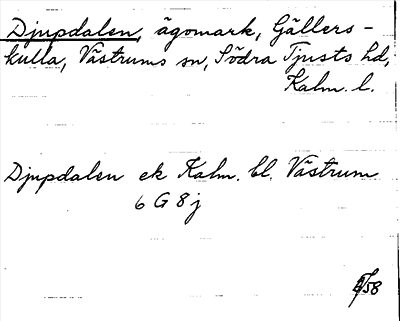 Djupdalen, ägomark, Gällers-
kulla, Västrums sn, Södra Tjusts hd,
Kalm. l.
Djupdalen ek Kalm. bl. Västrum
6 G 8 j